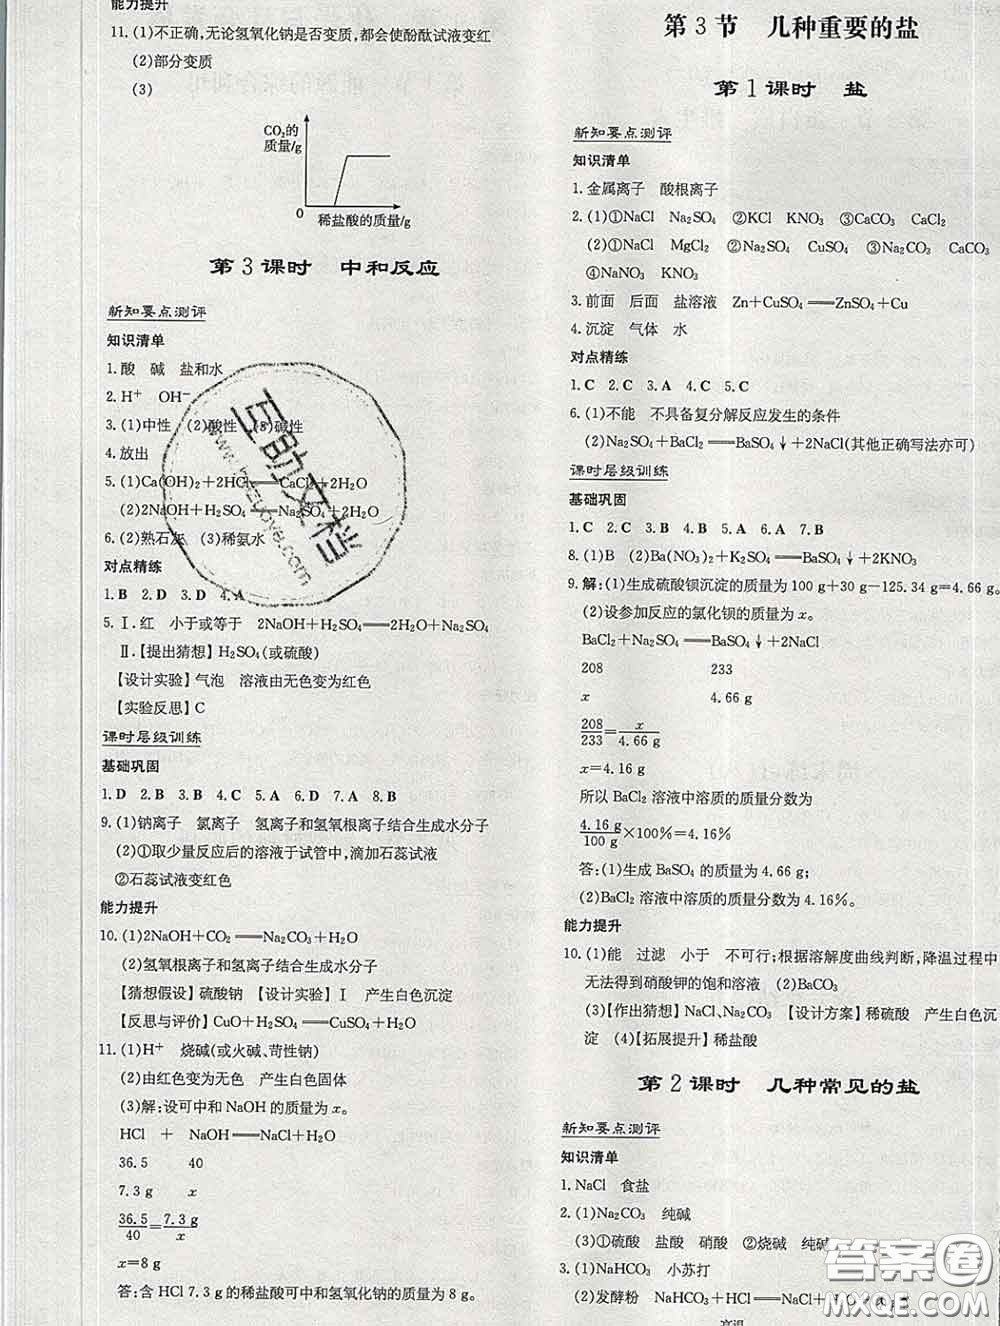 能力提升
11. (1)不正确,无论氢氧化钠是否变质,都会使酚酞试液变红
(2)部分变质
(3)
CO₂的质量/g
0
稀盐酸的质量/g
第3课时 中和反应
新知要点测评
知识清单
1. 酸 碱 盐和水
2. H⁺ OH⁻
3. (1)中性 (2)酸性 (3)碱性
4. 放出
5. (1)Ca(OH)₂+2HCl══CaCl₂+2H₂O
(2)2NaOH+H₂SO₄══Na₂SO₄+2H₂O
6. (2)熟石灰 (3)稀氨水
对点精练
1. B 2. D 3. D 4. A
5. Ⅰ. 红 小于或等于 2NaOH+H₂SO₄══2H₂O+Na₂SO₄
Ⅱ.【提出猜想】H₂SO₄(或硫酸)
【设计实验】气泡 溶液由无色变为红色
【实验反思】C
课时层级训练
基础巩固
1. D 2. B 3. B 4. C 5. A 6. D 7. A 8. B
9. (1)钠离子 氯离子 氢离子和氢氧根离子结合生成水分子
(2)①取少量反应后的溶液于试管中,滴加石蕊试液
②石蕊试液变红色
能力提升
10. (1)2NaOH+CO₂══Na₂CO₃+H₂O
(2)氢氧根离子和氢离子结合生成水分子
【猜想假设】硫酸钠 【设计实验】Ⅰ 产生白色沉淀
【反思与评价】CuO+H₂SO₄══CuSO₄+H₂O
11. (1)H⁺ 烧碱(或火碱、苛性钠)
(2)由红色变为无色 产生白色固体
(3)解:设可中和NaOH的质量为x。
HCl + NaOH══NaCl+H₂O
36.5 40
7.3 g x
36.5/40=7.3 g/x
x=8 g
答:含HCl 7.3 g的稀盐酸可中和氢氧化钠的质量为8 g。
第3节 几种重要的盐
第1课时 盐
新知要点测评
知识清单
1. 金属离子 酸根离子
2. (1)①NaCl Na₂SO₄ ②KCl KNO₃ ③CaCO₃ CaCl₂
(2)①NaCl MgCl₂ ②Na₂SO₄ CuSO₄ ③Na₂CO₃ CaCO₃
④NaNO₃ KNO₃
3. 前面 后面 盐溶液 Zn+CuSO₄══ZnSO₄+Cu
4. 沉淀 气体 水
对点精练
1. C 2. C 3. A 4. C 5. C
6. (1)不能 不具备复分解反应发生的条件
(2)Na₂SO₄+BaCl₂══BaSO₄↓+2NaCl(其他正确写法亦可)
课时层级训练
基础巩固
1. C 2. C 3. B 4. B 5. A 6. A 7. B
8. (1)B (2)Ba(NO₃)₂+K₂SO₄══BaSO₄↓+2KNO₃
9. 解:(1)生成硫酸钡沉淀的质量为100 g+30 g−125.34 g=4.66 g。
(2)设参加反应的氯化钡的质量为x。
BaCl₂+Na₂SO₄══BaSO₄↓+2NaCl
208 233
x 4.66 g
208/233=x/4.66 g
x=4.16 g
所以BaCl₂溶液中溶质的质量分数为
4.16 g/100 g×100%=4.16%
答:(1)生成BaSO₄的质量为4.66 g;
(2)BaCl₂溶液中溶质的质量分数为4.16%。
能力提升
10. (1)能 过滤 小于 不可行;根据溶解度曲线判断,降温过程中
无法得到硝酸钾的饱和溶液 (2)BaCO₃
(3)【作出猜想】NaCl、Na₂CO₃ 【设计方案】稀硫酸 产生白色沉
淀 (4)【拓展提升】稀盐酸
第2课时 几种常见的盐
新知要点测评
知识清单
1. NaCl 食盐
2. (1)Na₂CO₃ 纯碱
(3)①硫酸 盐酸 硝酸 ②烧碱 纯碱
3. (1)NaHCO₃ 小苏打
(2)发酵粉 NaHCO₃+HCl══NaCl+H₂O+CO₂↑
高温
互助文档
www.hzuove.com
答案圈
MXQE.COM